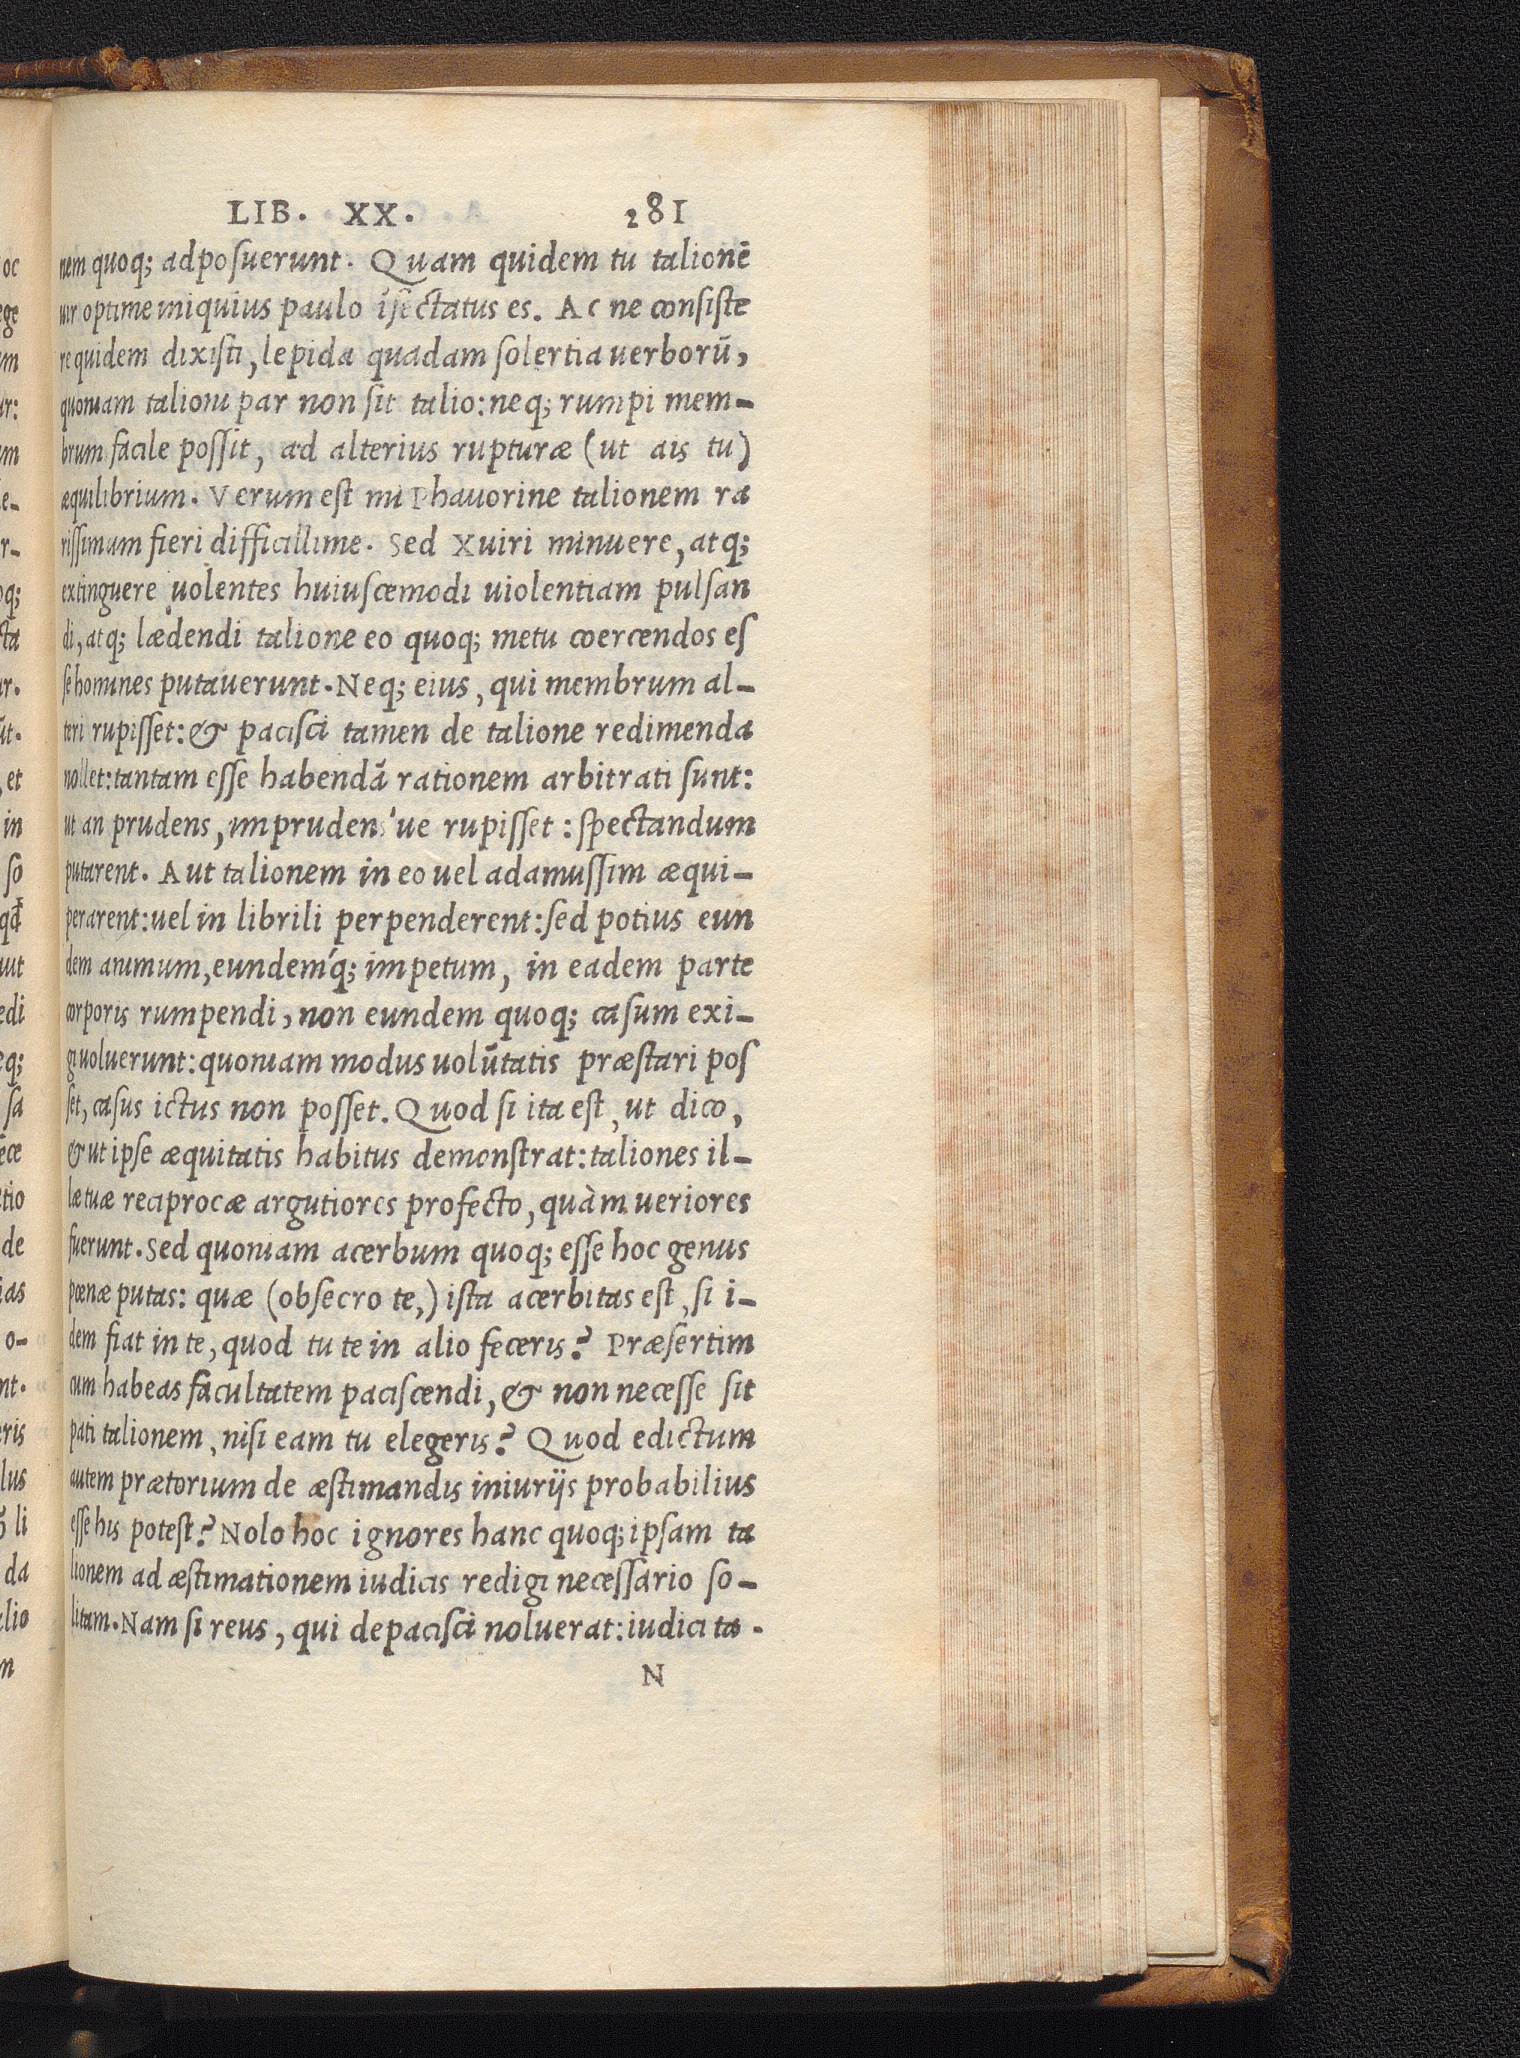 LIB. XX. 281
nem quoq; adposuerunt. Quam quidem tu talionē
uir optime iniquius paulo īsectatus es. Ac ne consiste
re quidem dixisti, lepida quadam solertia uerborū,
quoniam talioni par non sit talio: neq; rumpi mem-
brum facile possit, ad alterius rupturæ (ut ais tu)
æquilibrium. Verum est mi Phauorine talionem ra
rissimam fieri difficillime. Sed Xuiri minuere, atq;
extinguere uolentes huiuscemodi uiolentiam pulsan
di, atq; lædendi talione eo quoq; metu coercendos es
se homines putauerunt. Neq; eius, qui membrum al-
teri rupisset: & pacisci tamen de talione redimenda
nollet: tantam esse habendā rationem arbitrati sunt:
ut an prudens, imprudens'ue rupisset: spectandum
putarent. Aut talionem in eo uel adamussim æqui-
perarent: uel in librili perpenderent: sed potius eun
dem animum, eundem'q; impetum, in eadem parte
corporis rumpendi, non eundem quoq; casum exi-
gi uoluerunt: quoniam modus uolūtatis præstari pos
set, casus ictus non posset. Quod si ita est, ut dico,
& ut ipse æquitatis habitus demonstrat: taliones il-
læ tuæ reciprocæ argutiores profecto, quàm ueriores
fuerunt. Sed quoniam acerbum quoq; esse hoc genus
pœnæ putas: quæ (obsecro te,) ista acerbitas est, si i-
dem fiat in te, quod tu te in alio feceris? Præsertim
cum habeas facultatem paciscendi, & non necesse sit
pati talionem, nisi eam tu elegeris? Quod edictum
autem prætorium de æstimandis iniurijs probabilius
esse his potest? Nolo hoc ignores hanc quoq; ipsam ta
lionem ad æstimationem iudicis redigi necessario so-
litam. Nam si reus, qui depacisci noluerat: iudici ta-
N